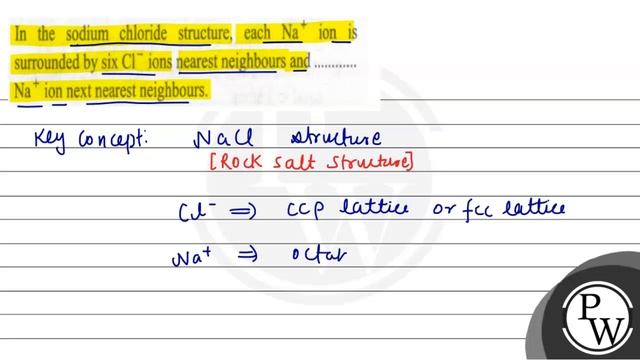 In the sodium chloride structure, each Na⁺ ion is
surrounded by six Cl⁻ ions nearest neighbours and ............
Na⁺ ion next nearest neighbours.
Key Concept: NaCl structure
[Rock salt structure]
Cl⁻ ⇒ CCP lattice or fcc lattice
Na⁺ ⇒ octah
P
W